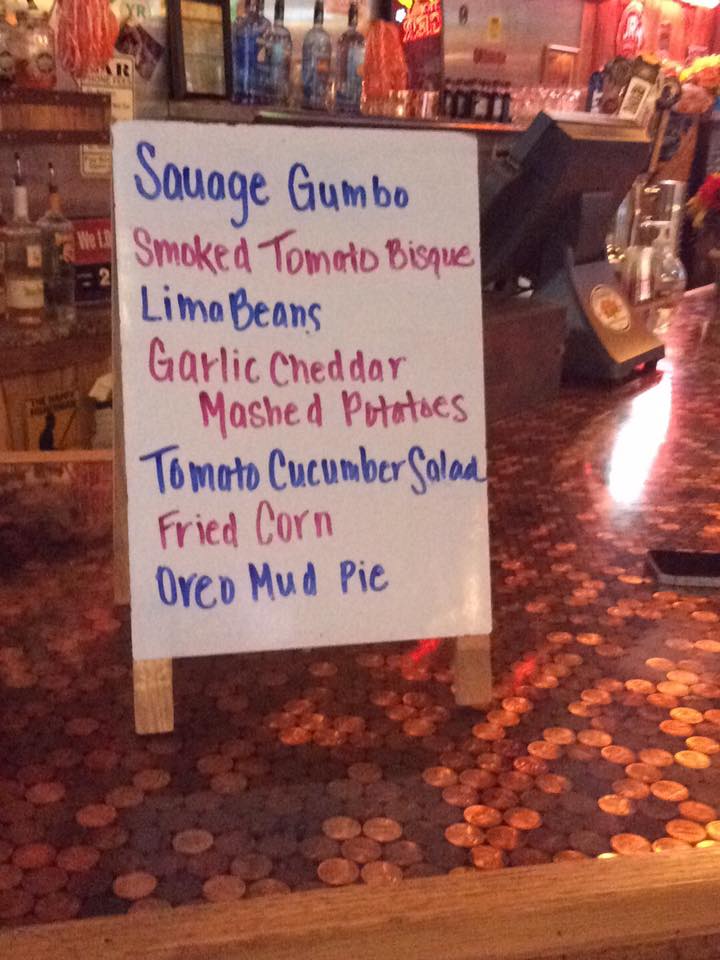 Sauage Gumbo
Smoked Tomato Bisque
Lima Beans
Garlic Cheddar
Mashed Potatoes
Tomato Cucumber Salad
Fried Corn
Oreo Mud Pie